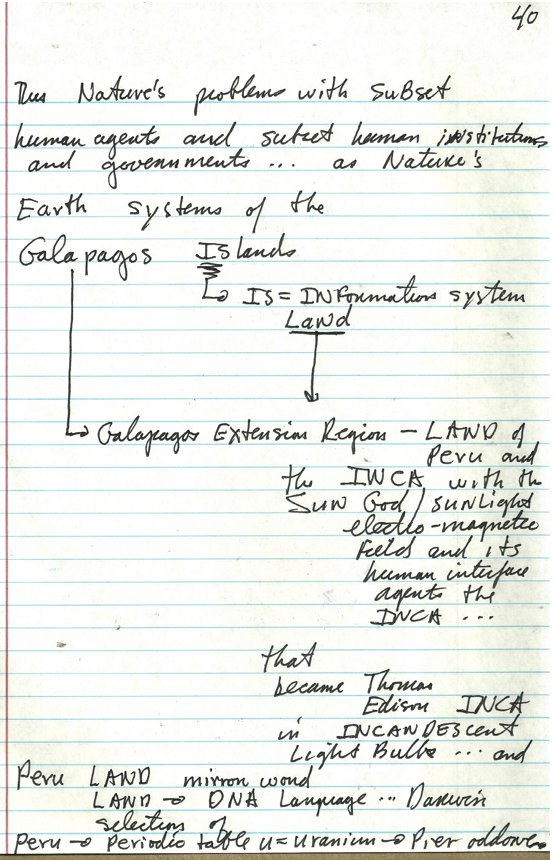 40
Thus Nature's problems with subset
human agents and subset human institutions
and governments ... as Nature's
Earth systems of the
Galapagos ISlands
IS = INFormation system
Land
Galapagos Extension Region — LAND of
Peru and
the INCA with the
Sun God / sunlight
electro-magnetic
Fields and its
human interface
agents the
INCA ...
that
became Thomas
Edison INCA
in INCANDESCENT
Light Bulbs ... and
Peru LAND mirror word
LAND → DNA Language ... Darwin
selection of
Peru → Periodic table u = uranium → Pier